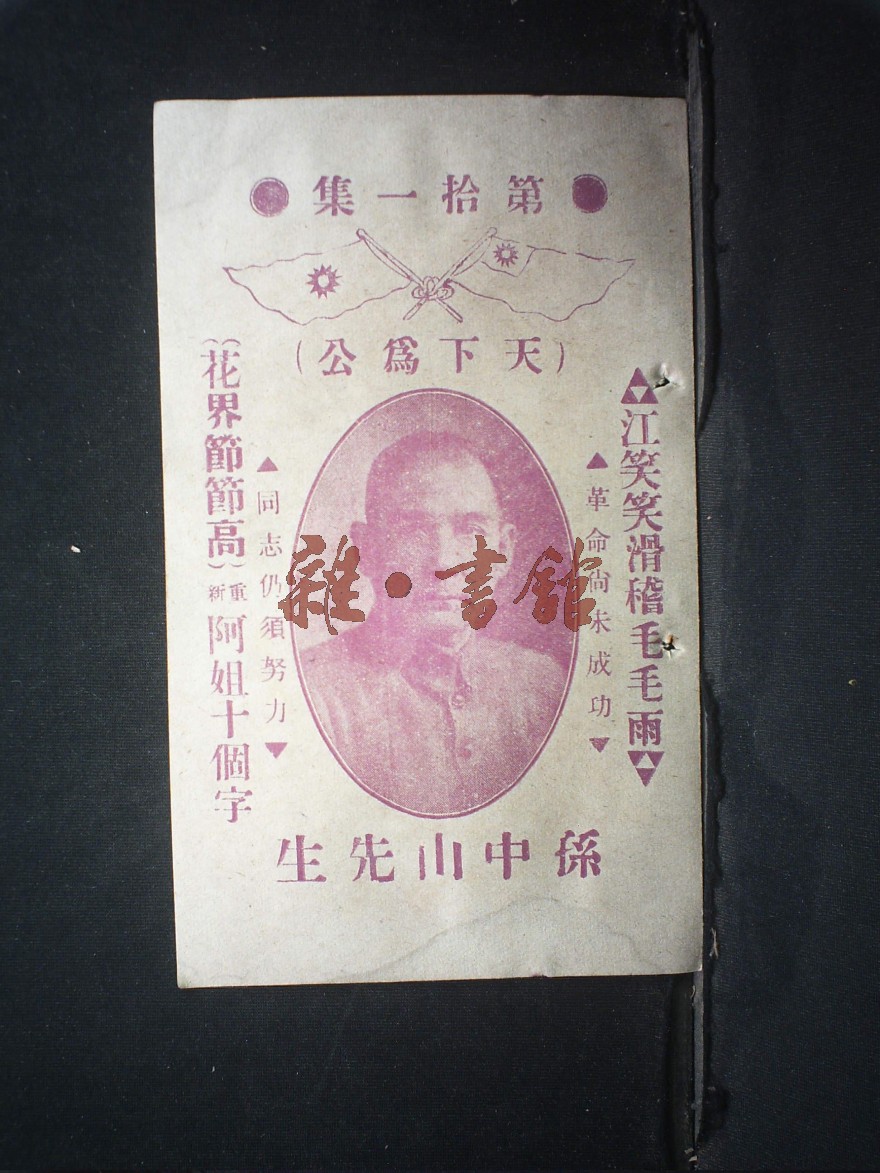 第拾一集
(天下爲公)
江笑笑滑稽毛毛雨
革命尙未成功
同志仍須努力
(花界節節高)重新阿姐十個字
孫中山先生
雜·書館